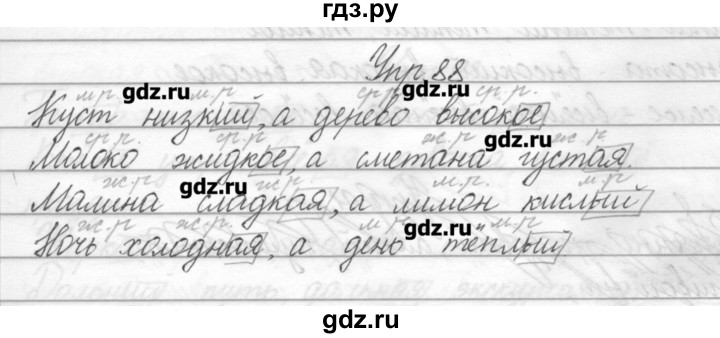 гдз.ру
Упр 88
м.р. gdz.ru м.р. ср.р. gdz.ru ср.р.
Куст низкий, а дерево высокое
ср.р. ср.р. ж.р. gdz.ru ж.р.
Молоко жидкое, а сметана густая.
ж.р. gdz.ru ж.р. м.р. м.р.
Малина сладкая, а лимон кислый
ж.р. ж.р. м.р. gdz.ru м.р.
Ночь холодная, а день тёплый
gdz.ru